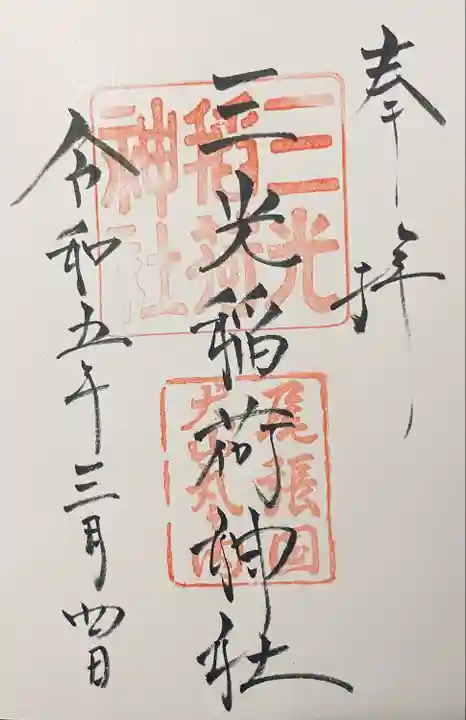 奉拝
三光稲荷神社
三光
稲荷
神社
尾張国
犬山丸の内
令和五年三月四日